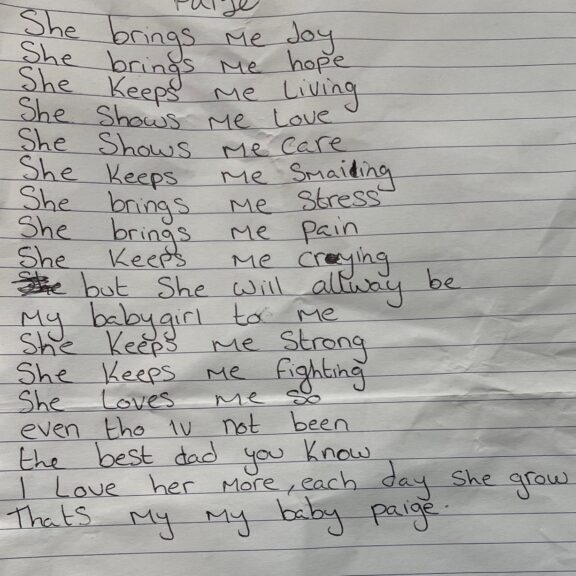 Paige
She brings me Joy
She brings me hope
She Keeps me Living
She Shows me Love
She Shows me care
She Keeps me Smaiding
She brings me Stress
She brings me pain
She Keeps me creying
She but She will allway be
My babygirl to me
She Keeps me Strong
She Keeps me fighting
She Loves me so
even tho iv not been
the best dad you know
I Love her more, each day she grow
Thats My My baby paige.